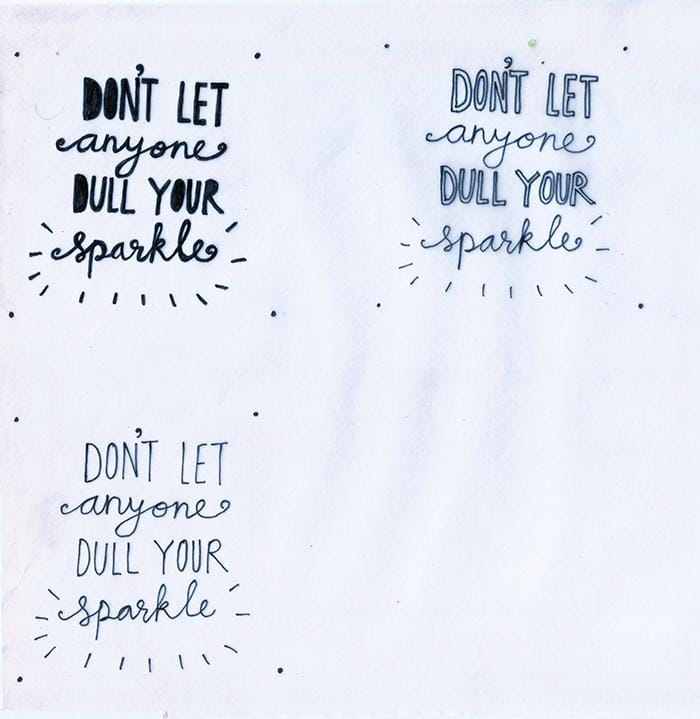 DON'T LET
anyone
DULL YOUR
sparkle
DON'T LET
anyone
DULL YOUR
sparkle
DON'T LET
anyone
DULL YOUR
sparkle